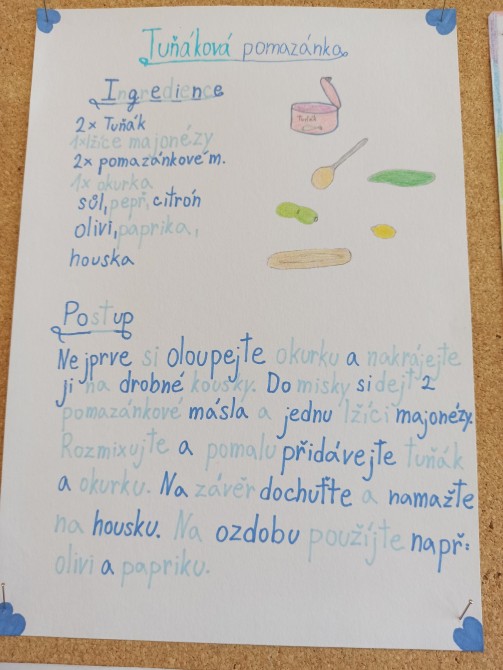 Tuňáková pomazánka
Ingredience
2x Tuňák
1xlžíce majonézy
2x pomazánkové m.
1x okurka
sůl, pepř, citrón
olivi, paprika,
houska
Tuňák
Postup
Nejprve si oloupejte okurku a nakrájejte
ji na drobné kousky. Do misky si dejt 2
pomazánkové másla a jednu lžíci majonézy.
Rozmixujte a pomalu přidávejte tuňák
a okurku. Na závěr dochuťte a namažte
na housku. Na ozdobu použijte např:
olivi a papriku.